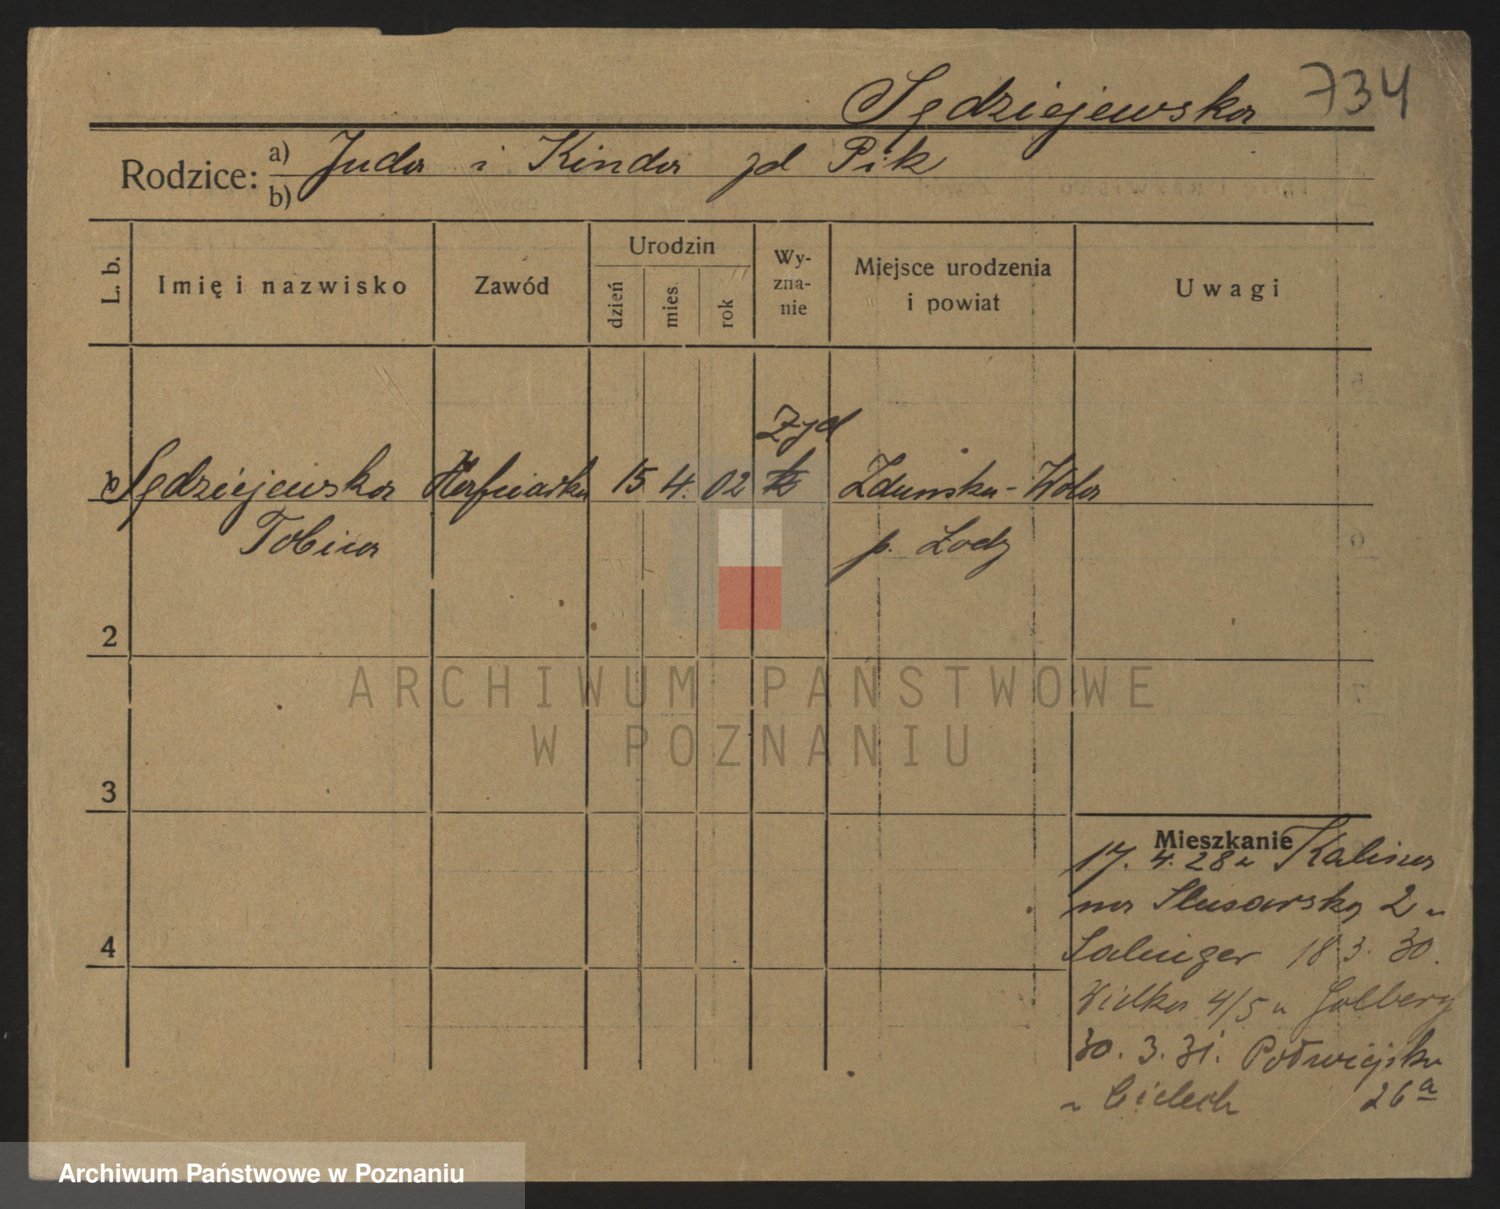 Sędziejewska 734
Rodzice: a) Juda i Kinda zd Pik
b)
L. b. Imię i nazwisko Zawód Urodzin dzień mies. rok Wy-zna-nie Miejsce urodzenia i powiat Uwagi
Żyd
Sędziejewska 15 4. 02 Zduńska-Wola
Tobina p. Łodz
2
3
4
Mieszkanie
17. 4. 28 z Kalisza
na Slusarską 2 u
Salinger 18 3. 30.
Wielka 4/5 u Golberg
30. 3. 31. Podwiejska
u Cielech 26a
ARCHIWUM PAŃSTWOWE
W POZNANIU
Archiwum Państwowe w Poznaniu